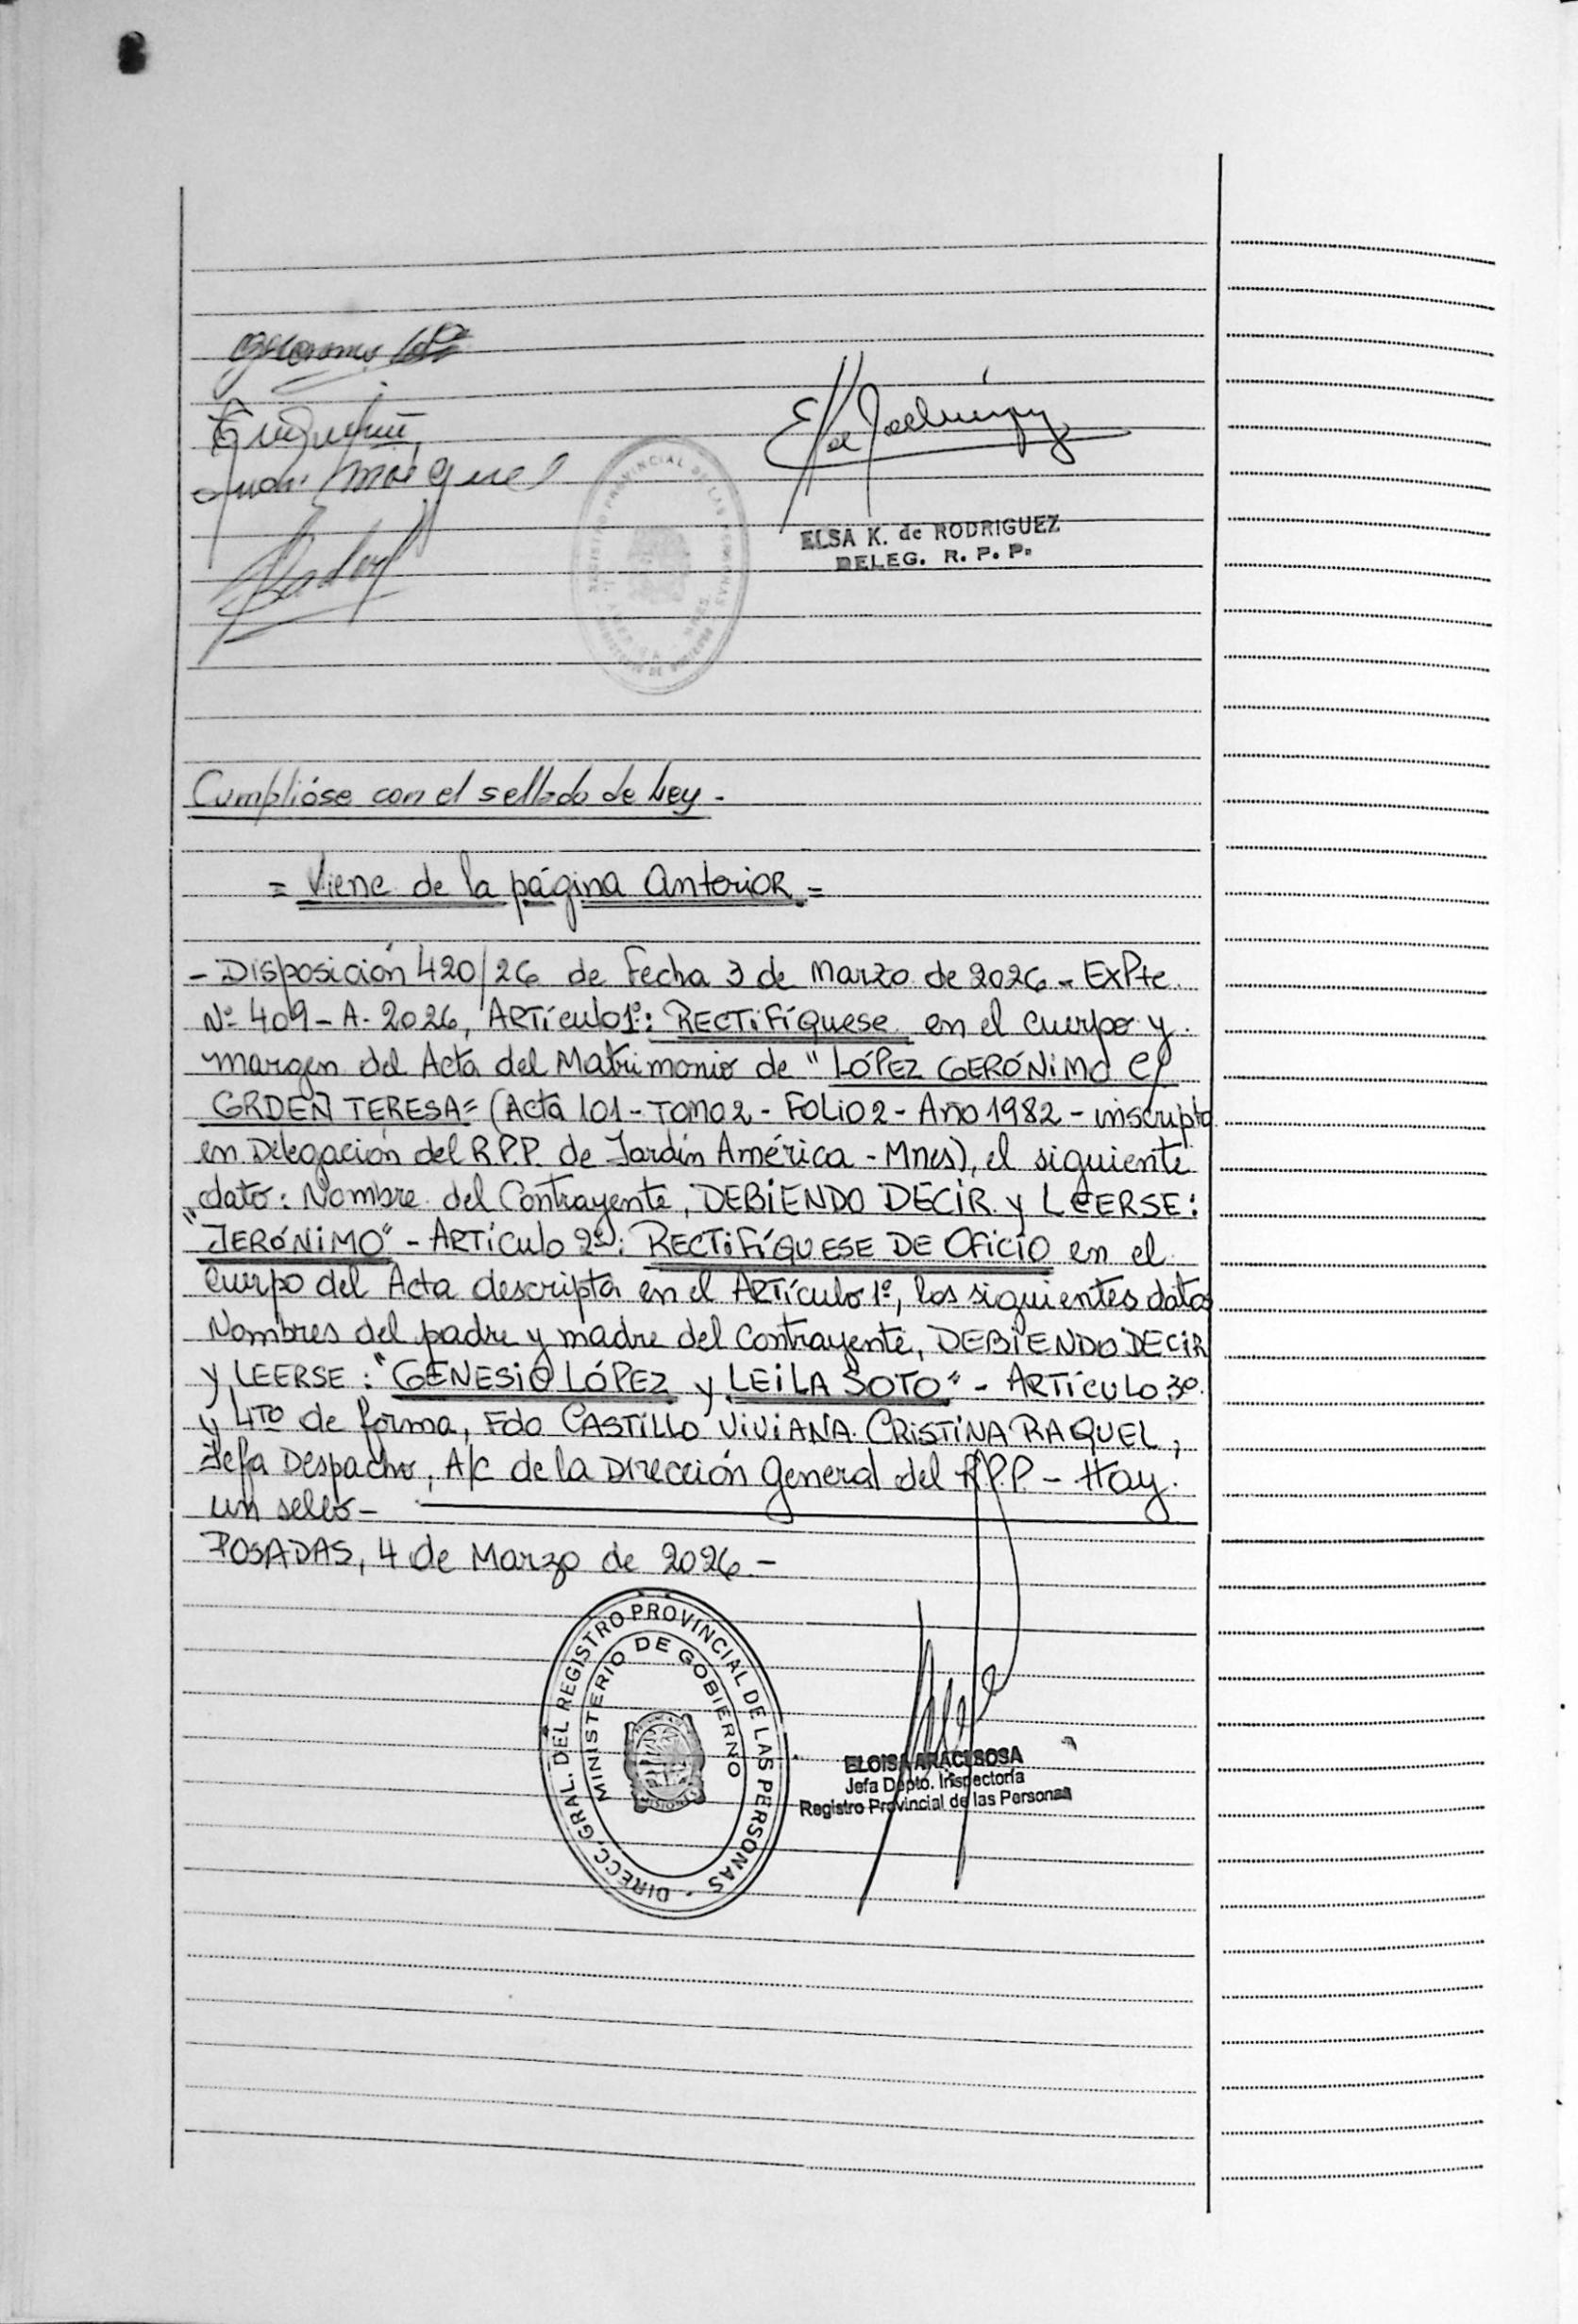 ELSA K. de RODRIGUEZ
DELEG. R. P. P.
REGISTRO PROVINCIAL DE LAS PERSONAS
Cumplióse con el sellado de Ley.-
= Viene de la página anterior.=
- Disposición 420/26 de Fecha 3 de Marzo de 2026 - ExPte.
Nº 409 - A - 2026, ARTículo 1º: RECTiFíquese en el cuerpo y
margen del Acta del Matrimonio de "LÓPEZ GERÓNiMO C/
GRDEN TERESA= (Acta 101 - Tomo 2 - FOLiO 2 - Año 1982 - inscripto
en Delegación del R.P.P. de Jardín América - Mnes), el siguiente
dato: Nombre del Contrayente, DEBiENDO DECiR y LEERSE:
"JERÓNiMO" - ARTículo 2º: RECTiFíQUESE DE OFiCiO en el
cuerpo del Acta descripta en el ARTículo 1º, los siguientes datos
Nombres del padre y madre del Contrayente, DEBiENDO DECiR
y LEERSE: "GENESiO LÓPEZ y LEiLA SOTO" - ARTíCULO 3º
y 4TO de forma, Fdo CASTiLLO ViViANA CRiSTiNA RAQUEL,
Jefa Despacho, A/C de la Dirección General del R.P.P. - Hay
un sello -
POSADAS, 4 de Marzo de 2026.-
DIRECC. GRAL. DEL REGISTRO PROVINCIAL DE LAS PERSONAS
MINISTERIO DE GOBIERNO
ELOISA ARACI SOSA
Jefa Dpto. Inspectoría
Registro Provincial de las Personas